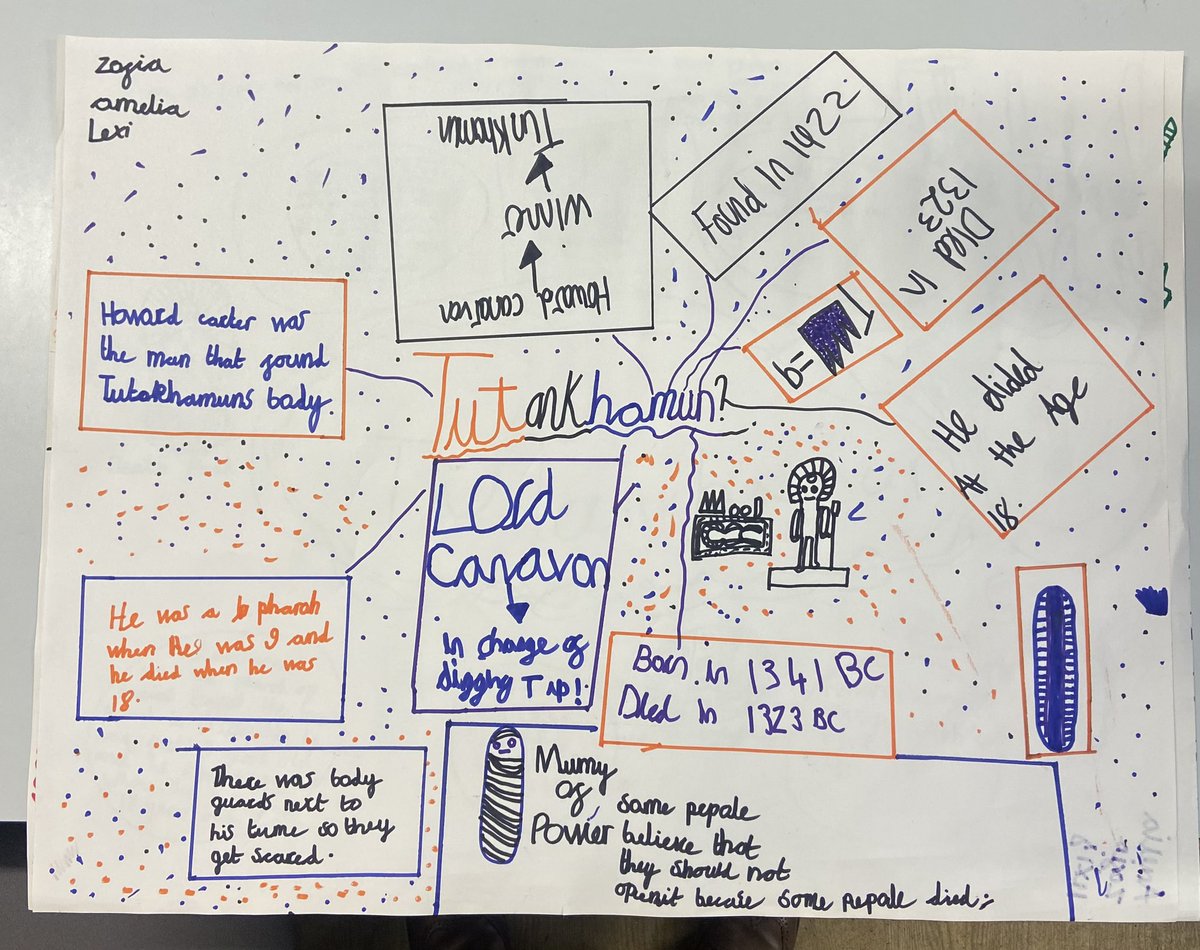 Zofia
amelia
Lexi
Tunkhamun
winne
Howard canarvon
Found in 1922
Died in
1323
Howard carter was
the man that found
Tutakhamuns body.
Tutankhamun?
b=
He dided
At the Age
18.
LOrd
Canarvon
in charge of
digging T up!
He was a b pharoh
when He was 9 and
he died when he was
18.
Born in 1341 BC
Died in 1323 BC
There was body
guards next to
his tume so they
get scared.
Mumy
of
Power
some pepale
believe that
they should not
openit becase some pepale died;